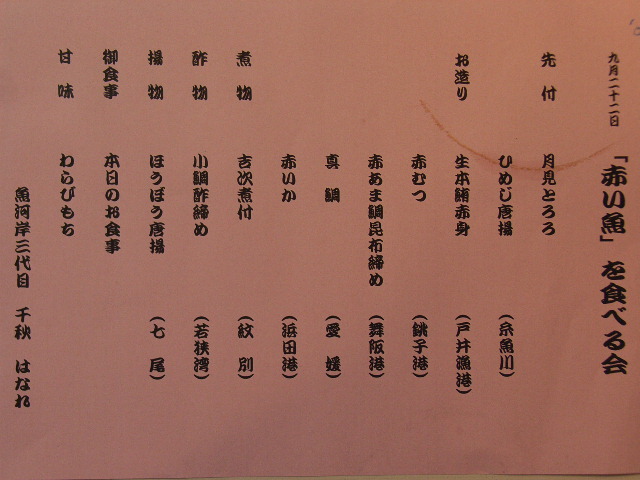 九月二十二日
「赤い魚」を食べる会
先付 月見とろろ
ひめじ唐揚 (糸魚川)
お造り 生本鮪赤身 (戸井漁港)
赤むつ (銚子港)
赤あま鯛昆布締め (舞阪港)
真鯛 (愛媛)
赤いか (浜田港)
煮物 吉次煮付 (紋別)
酢物 小鯛酢締め (若狭湾)
揚物 ほうぼう唐揚 (七尾)
御食事 本日のお食事
甘味 わらびもち
魚河岸三代目 千秋 はなれ